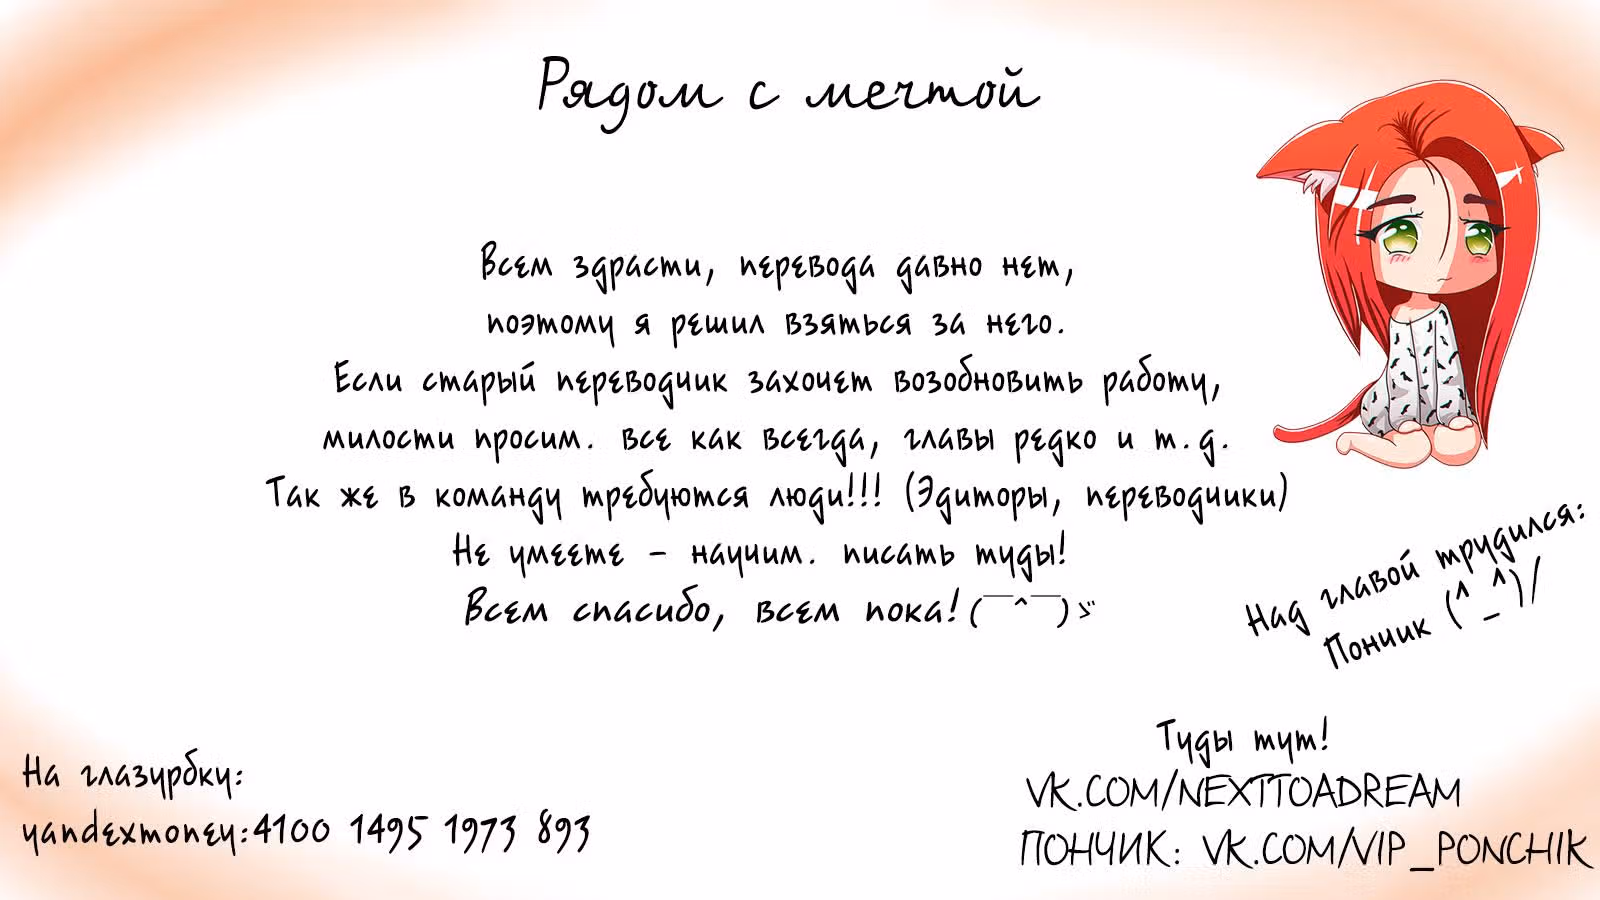 Рядом с мечтой
Всем здрасти, перевода давно нет,
поэтому я решил взяться за него.
Если старый переводчик захочет возобновить работу,
милости просим. все как всегда, главы редко и т.д.
Так же в команду требуются люди!!! (Эдиторы, переводчики)
Не умеете - научим. писать туды!
Всем спасибо, всем пока!(￣^￣)ゞ
Над главой трудился:
Пончик (^_^)/
Туды тут!
VK.COM/NEXTTOADREAM
ПОНЧИК: VK.COM/VIP_PONCHIK
На глазурбку:
yandexmoney:4100 1495 1973 893